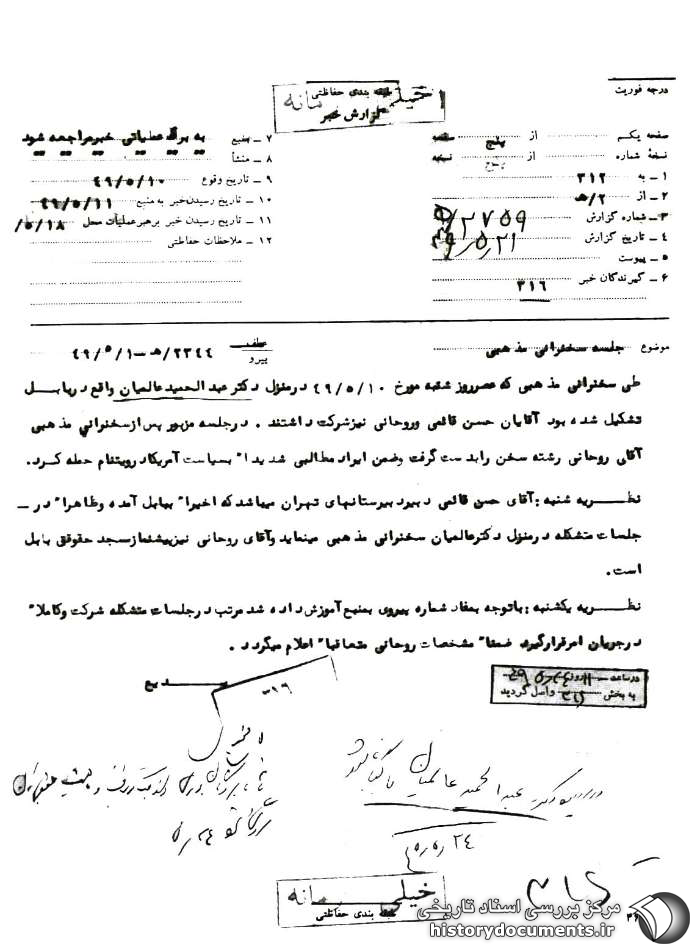 درجه فوریت
طبقه بندی حفاظتی
خیلی محرمانه
گزارش خبر
صفحه یکم از پنج صفحه
نسخه شماره از پنج نسخه
۱ ـ به ۳۱۲
۲ ـ از ۲/ﻫ
۳ ـ شماره گزارش ۲۷۵۹/
۴ ـ تاریخ گزارش ۴۹٫۵٫۲۱
۵ ـ پیوست
۶ ـ گیرندگان خبر ۳۱۶
۷ ـ منبع به برگ عملیاتی خبر مراجعه شود
۸ ـ منشأ
۹ ـ تاریخ وقوع ۴۹/۵/۱۰
۱۰ ـ تاریخ رسیدن خبر به منبع ۴۹/۵/۱۱
۱۱ ـ تاریخ رسیدن خبر برهبر عملیات محل ۵/۱۸/
۱۲ ـ ملاحظات حفاظتی
موضوع جلسه سخنرانی مذهبی
عطف پیرو ۲۳۴۴/ﻫ ـ ۴۹/۵/۱
طی سخنرانی مذهبی که عصر روز شنبه مورخ ۴۹/۵/۱۰ در منزل دکتر عبدالحمید عالمیان واقع در بابل
تشکیل شده بود آقایان حسن قائمی و روحانی نیز شرکت داشتند . در جلسه مزبور پس از سخنرانی مذهبی
آقای روحانی رشته سخن را بدست گرفت وضمن ایراد مطالبی شدیدا" بسیاست آمریکا در ویتنام حمله کرد.
نظـــریه شنبه : آقای حسن قائمی دبیر دبیرستانهای تهران میباشد که اخیرا" ببابل آمده وظاهرا" در ـ
جلسات متشکله در منزل دکتر عالمیان سخنرانی مذهبی مینماید وآقای روحانی نیز پیشنماز مسجد حقوقق بابل
است.
نظـــریه یکشنبه : باتوجه بمفاد شماره پیروی بمنبع آموزش داده شد مرتب در جلسات متشکله شرکت وکاملا"
در جریان امر قرار گیرد ضمنا" مشخصات روحانی متعاقبا" اعلام میگردد .
بدیع
۱۶-
در ساعت ۱۱ روز ۴۹
به بخش ۳۱۶ واصل گردید
دکتر عبدالحمید عالمیان
۲۴٫۵٫
۵٫۲۴
خیلی محرمانه
طبقه بندی حفاظتی
مرکز بررسی اسناد تاریخی
historydocuments.ir